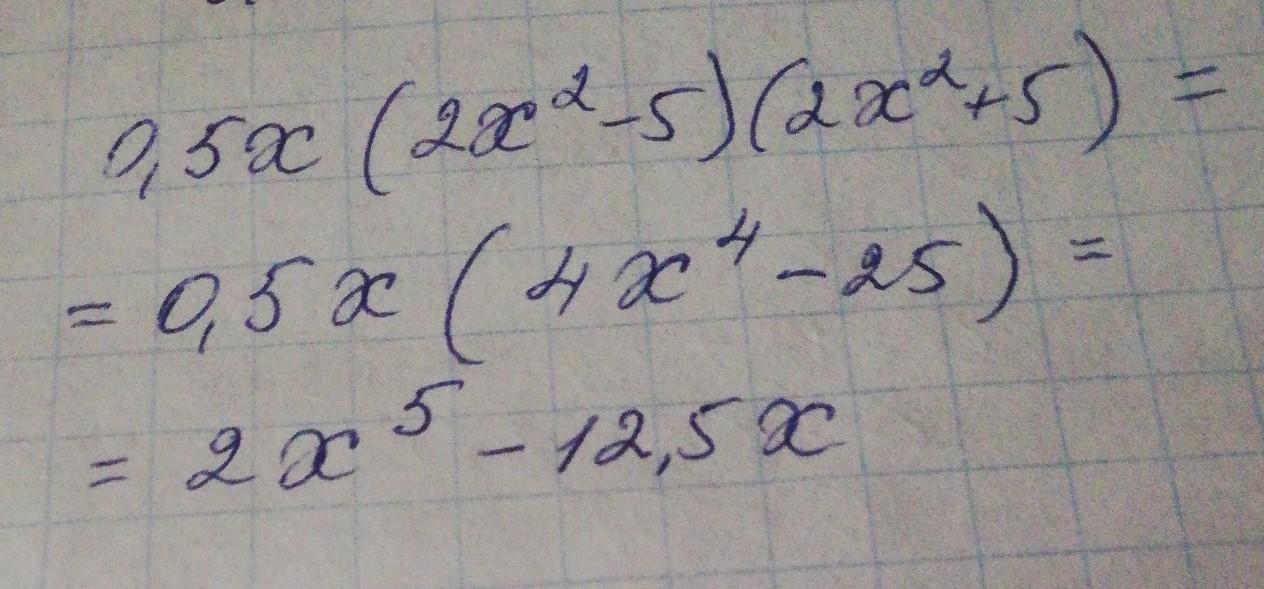 0,5x (2x² - 5)(2x² + 5) =
= 0,5x (4x⁴ - 25) =
= 2x⁵ - 12,5x